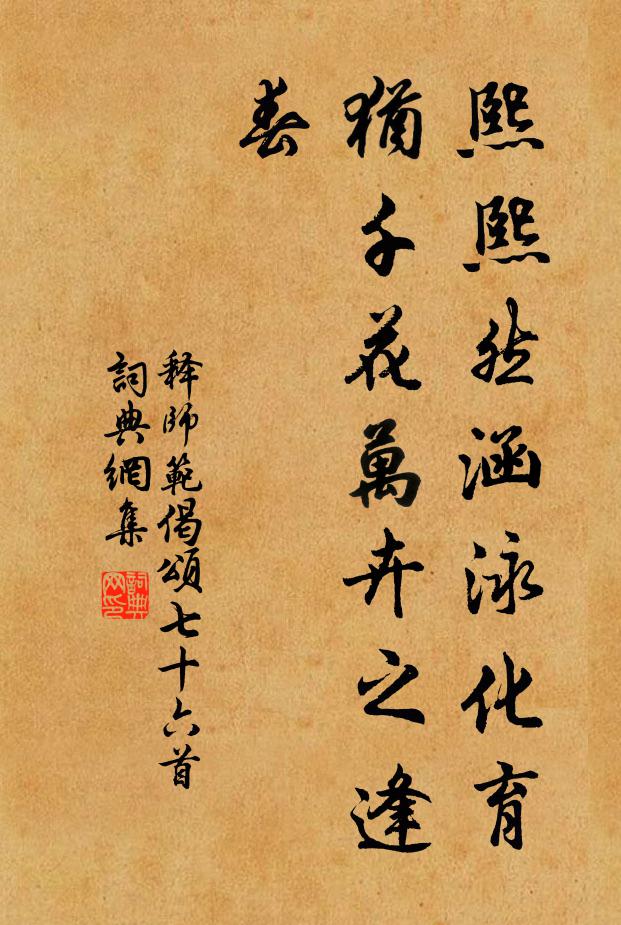 熙熙然涵泳化育
猶千花萬卉之逢
春
释師範偈頌七十六首
詞典網集
詞典网印